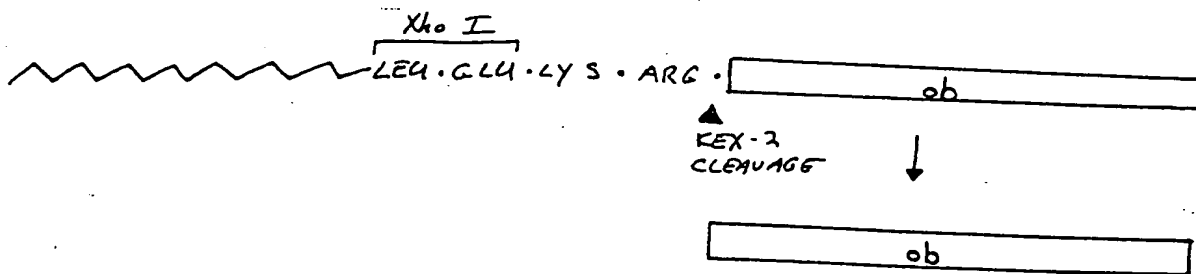 Xho I
LEU·GLU·LYS·ARG·
ob
KEX-2
CLEAVAGE
ob